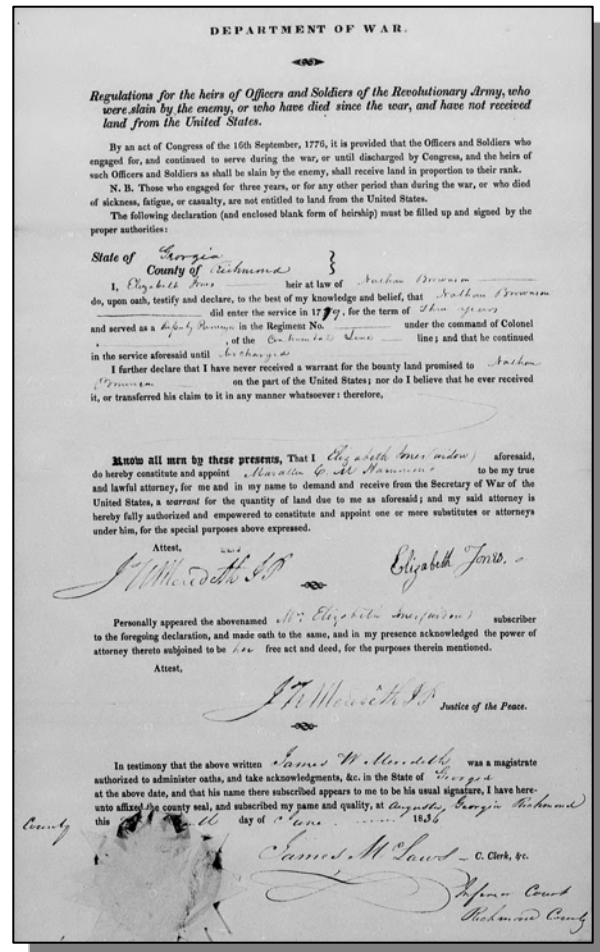 DEPARTMENT OF WAR.
Regulations for the heirs of Officers and Soldiers of the Revolutionary Army, who
were slain by the enemy, or who have died since the war, and have not received
land from the United States.
By an act of Congress of the 16th September, 1776, it is provided that the Officers and Soldiers who
engaged for, and continued to serve during the war, or until discharged by Congress, and the heirs of
such Officers and Soldiers as shall be slain by the enemy, shall receive land in proportion to their rank.
N. B. Those who engaged for three years, or for any other period than during the war, or who died
of sickness, fatigue, or casualty, are not entitled to land from the United States.
The following declaration (and enclosed blank form of heirship) must be filled up and signed by the
proper authorities:
State of Georgia
County of Richmond }
I, Elizabeth Jones heir at law of Nathan Brownson
do, upon oath, testify and declare, to the best of my knowledge and belief, that Nathan Brownson
did enter the service in 1779, for the term of Three years
and served as a Deputy in the Regiment No. under the command of Colonel
, of the Continental Line line; and that he continued
in the service aforesaid until discharged
I further declare that I have never received a warrant for the bounty land promised to Nathan
Brownson on the part of the United States; nor do I believe that he ever received
it, or transferred his claim to it in any manner whatsoever: therefore,
Know all men by these presents, That I Elizabeth Jones (widow) aforesaid,
do hereby constitute and appoint to be my true
and lawful attorney, for me and in my name to demand and receive from the Secretary of War of the
United States, a warrant for the quantity of land due to me as aforesaid; and my said attorney is
hereby fully authorized and empowered to constitute and appoint one or more substitutes or attorneys
under him, for the special purposes above expressed.
Attest,
J W Meredith J P Elizabeth Jones.
Personally appeared the abovenamed Mrs Elizabeth Jones (widow) subscriber
to the foregoing declaration, and made oath to the same, and in my presence acknowledged the power of
attorney thereto subjoined to be her free act and deed, for the purposes therein mentioned.
Attest,
J W Meredith J P Justice of the Peace.
In testimony that the above written James W Meredith was a magistrate
authorized to administer oaths, and take acknowledgments, &c. in the State of Georgia
at the above date, and that his name there subscribed appears to me to be his usual signature, I have here-
unto affixed the county seal, and subscribed my name and quality, at Augusta, Georgia Richmond
County this day of June 1836
James McLaws C. Clerk, &c.
Inferior Court
Richmond County